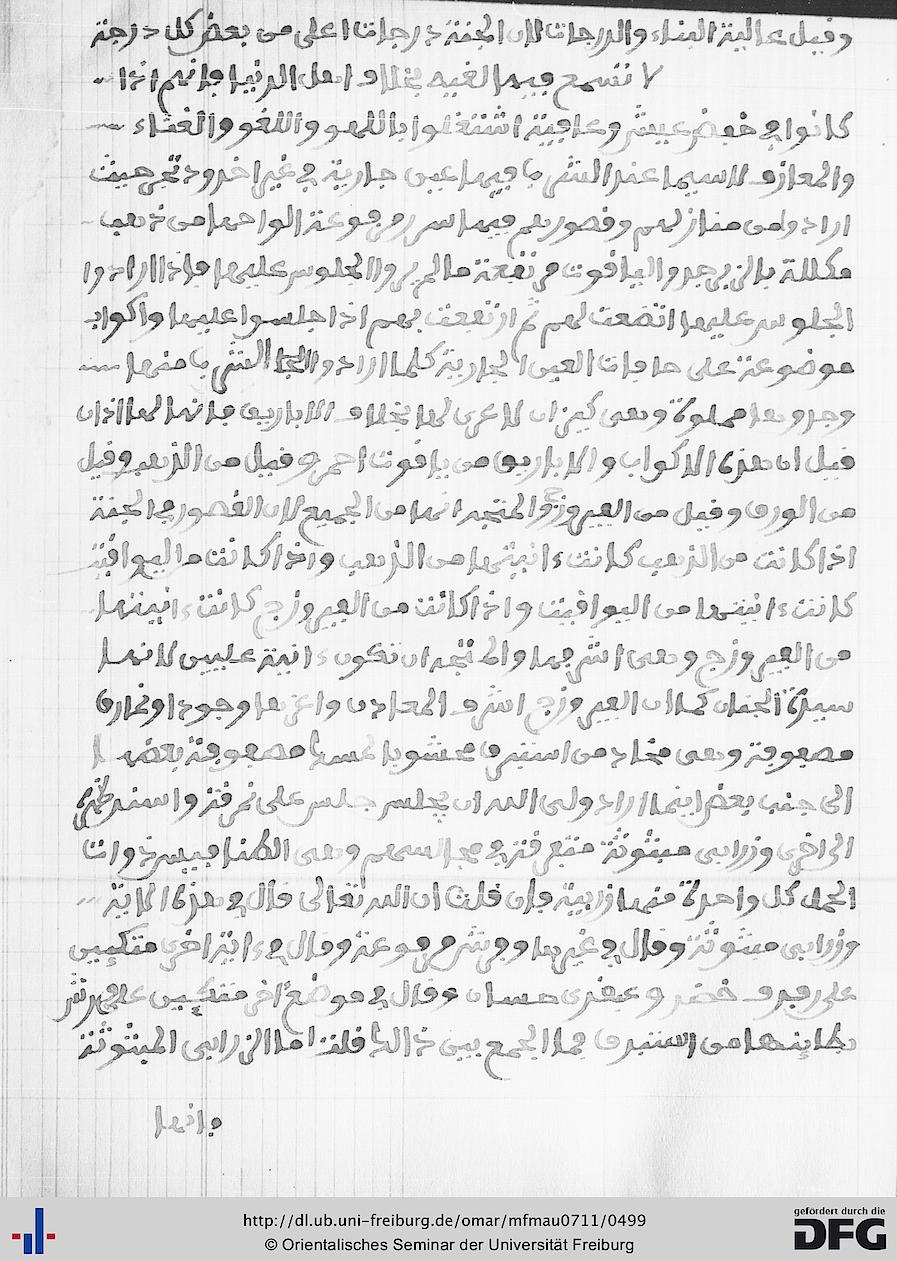 وقيل عالية البناء والدرجات لان الجنة درجات اعلى من بعض كل درجة
لا تسمع فيها لغية بخلاف اهل الدنيا فانهم اذا
كانوا في خفض عيش وعافية اشتغلوا باللهو واللغو والغناء
والمعازف لاسيما عند فيها عين جارية في غير اخدود تجري حيث
ارادوا من منازلهم وقصورهم فيها سرر مرفوعة الواحها من ذهب
مكللة بالزبرجد واليافوت مرتفعة مالم يريدوا الجلوس عليها فاذا ارادوا
الجلوس عليها اتضعت لهم ثم ارتفعت بهم اذا جلسوا عليها واكواب
موضوعة على حافات العين الجارية كلما ارادوا منها
وجدوها مملوة وهي كيزان لا عرى لها بخلاف الاباريق فانها لها اذان
قيل ان هذه الاكواب والاباريق من يافوت احمر وقيل من الذهب وقيل
من الورق وقيل من الفيروزج والمتجه انها من الجميع لان القصور في الجنة
اذا كانت من الذهب كانت ءانيتها من الذهب واذا كانت من اليوافيت
كانت ءانيتها من اليوافيت واذا كانت من الفيروزج كانت ءانيتها
من الفيروزج وهي اشرفها والمتجه ان تكون ءانية عليين لانها
سيدة الجنان كما ان الفيروزج اشرف المعادن واعزها وجودا ونمارق
مصفوفة وهي مخاد من استبرق محشوة بالمسك مصفوفة بعضها
الى جنب بعض اينما اراد ولي الله ان يجلس جلس على نمرقة واستند
الى اخرى وزرابي مبثوثة متفرقة في مجالسهم وهي الطنافيس ذوات
الخمل كل واحدة منها زربية فان قلت ان الله تعالى قال في هذه الاية
وزرابي مبثوثة وقال في غيرها وفرش مرفوعة وقال في ءاية اخرى متكيين
على رفرف خضر وعبقري حسان وقال في موضع اخر متكيين على فرش
بطاينها من استبرق فما الجمع بين ذالك قلت اما الزرابي المبثوثة
فانها
http://dl.ub.uni-freiburg.de/omar/mfmau0711/0499
© Orientalisches Seminar der Universität Freiburg
gefördert durch die
DFG